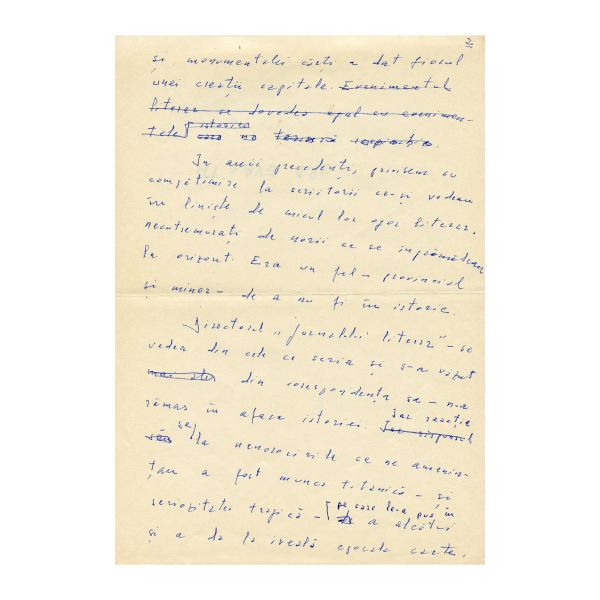 2
și monumentalei cărți a dat fiorul
unei creații capitale. Evenimentul
literar se dovedea egal cu evenimen-
tele istorice
care ne
În anii precedenți, privisem cu
compătimire la scriitorii ce-și vedeau
în liniște de micul lor ogor literar,
necutremurați de norii ce se îngrămădeau
la orizont. Era un fel – provincial
și minor – de a nu fi în istorie.
Directorul „Jurnalului literar" – se
vedea din cele ce scria și s-a văzut
mai ales din corespondența sa – n-a
rămas în afara istoriei. Iar reacția
Iar răspunsul
său sa la nenorocirile ce ne amenin-
țau a fost munca titanică – și
seriozitatea tragică – pe care le-a pus în
de a alcătui
și a da la iveală epocala carte.